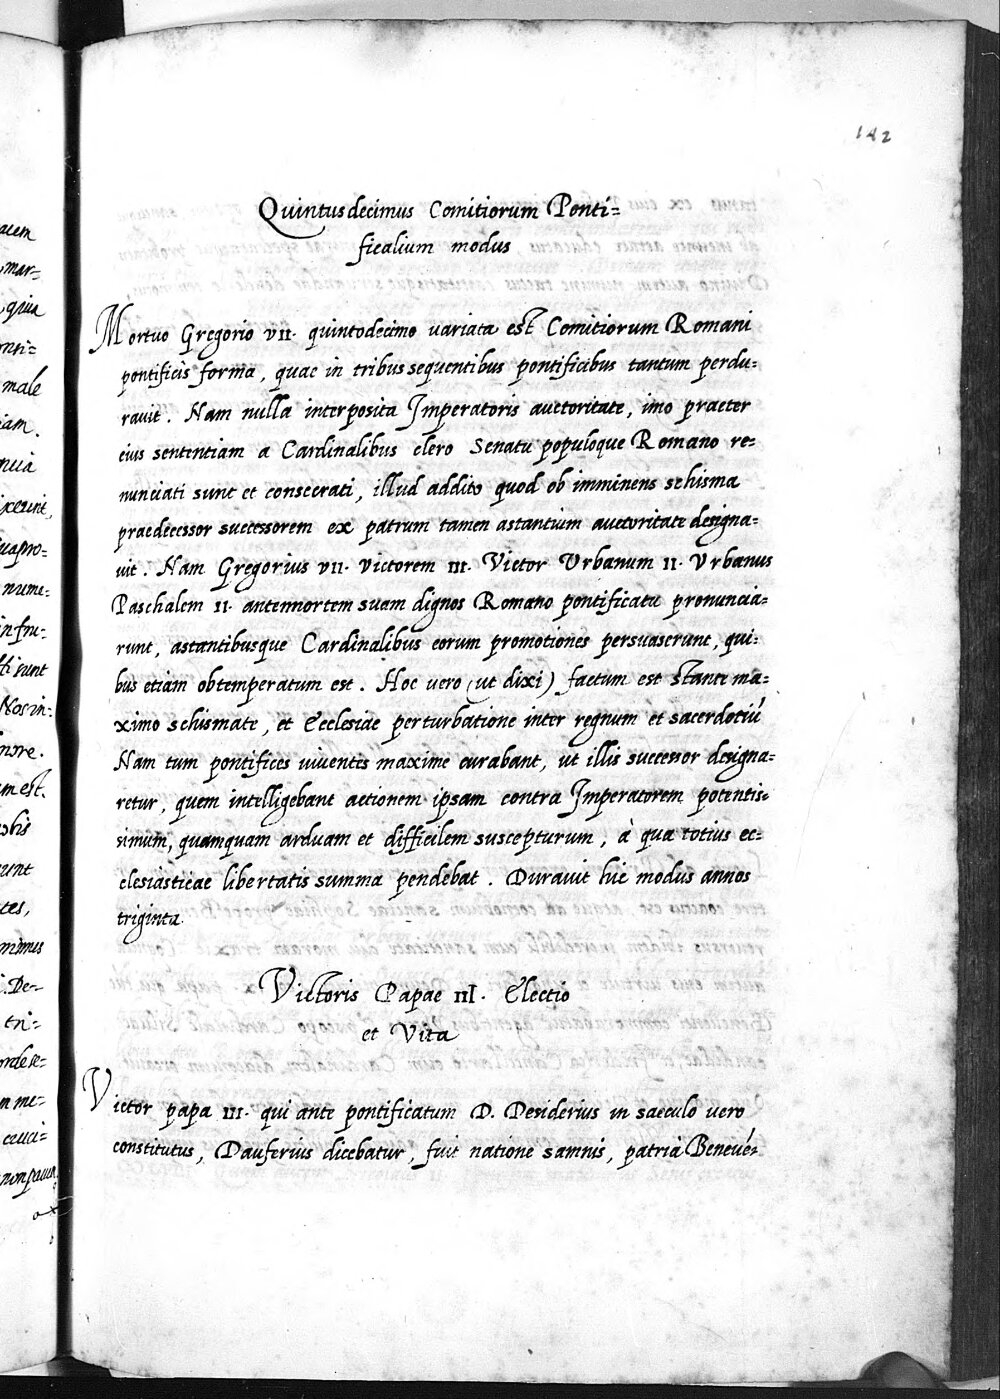 142
Quintusdecimus Comitiorum Ponti=
ficalium modus
Mortuo Gregorio VII. quintodecimo variata est Comitiorum Romani
pontificis forma, quae in tribus sequentibus pontificibus tantum perdu=
ravit. Nam nulla interposita Imperatoris auctoritate, imo praeter
eius sententiam a Cardinalibus clero Senatu populoque Romano re=
nunciati sunt et consecrati, illud addito quod ob imminens schisma
praedecessor successorem ex patrum tamen astantium auctoritate designa=
vit. Nam Gregorius VII. Victorem III. Victor Urbanum II. Urbanus
Paschalem II. ante mortem suam dignos Romano pontificatu pronuncia=
runt, astantibusque Cardinalibus eorum promotiones persuaserunt, qui=
bus etiam obtemperatum est. Hoc vero (ut dixi) factum est stante ma=
ximo schismate, et Ecclesiae perturbatione inter regnum et sacerdotiũ
Nam tum pontifices viventes maxime curabant, ut illis successor designa=
retur, quem intelligebant actionem ipsam contra Imperatorem potentis=
simum, quamquam arduam et difficilem suscepturum, à qua totius ec=
clesiasticae libertatis summa pendebat. Duravit hic modus annos
triginta
Victoris Papae III. Electio
et Vita
Victor papa III. qui ante pontificatum D. Desiderius in saeculo vero
constitutus, Dauferius dicebatur, fuit natione samnis, patria Benevẽ=